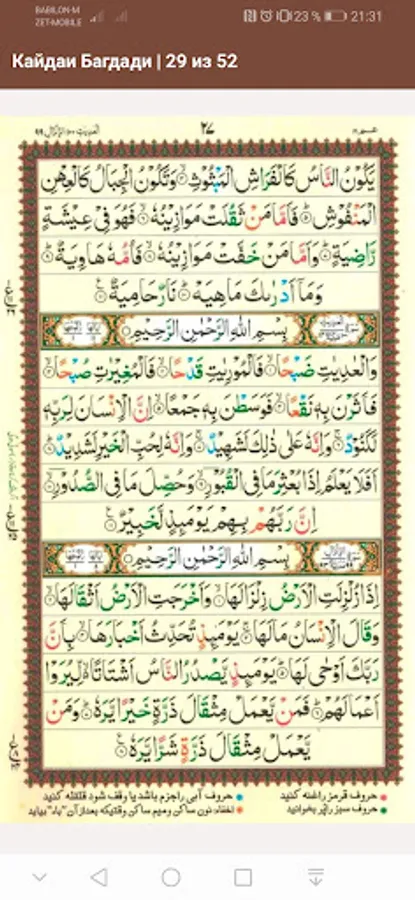 BABILON-M
ZET-MOBILE
23 %
21:31
Кайдаи Багдади | 29 из 52
۲۷
یَكُوۡنُ النَّاسُ كَالۡفَرَاشِ الۡمَبۡثُوۡثِ ۙ وَتَكُوۡنُ الۡجِبَالُ كَالۡعِهۡنِ
الۡمَنۡفُوۡشِ ؕ فَاَمَّا مَنۡ ثَقُلَتۡ مَوَازِیۡنُهٗ ۙ فَهُوَ فِیۡ عِیۡشَةٍ
رَّاضِیَةٍ ؕ وَاَمَّا مَنۡ خَفَّتۡ مَوَازِیۡنُهٗ ۙ فَاُمُّهٗ هَاوِیَةٌ ؕ
وَمَاۤ اَدۡرٰىكَ مَاهِیَهۡ ؕ نَارٌ حَامِیَةٌ
بِسۡمِ اللّٰهِ الرَّحۡمٰنِ الرَّحِیۡمِ
وَالۡعٰدِیٰتِ ضَبۡحًا ۙ فَالۡمُوۡرِیٰتِ قَدۡحًا ۙ فَالۡمُغِیۡرٰتِ صُبۡحًا ۙ
فَاَثَرۡنَ بِهٖ نَقۡعًا ۙ فَوَسَطۡنَ بِهٖ جَمۡعًا ۙ اِنَّ الۡاِنۡسَانَ لِرَبِّهٖ
لَكَنُوۡدٌ ۚ وَاِنَّهٗ عَلٰی ذٰلِكَ لَشَهِیۡدٌ ۚ وَاِنَّهٗ لِحُبِّ الۡخَیۡرِ لَشَدِیۡدٌ ؕ
اَفَلَا یَعۡلَمُ اِذَا بُعۡثِرَ مَا فِی الۡقُبُوۡرِ ۙ وَحُصِّلَ مَا فِی الصُّدُوۡرِ ۙ
اِنَّ رَبَّهُمۡ بِهِمۡ یَوۡمَىِٕذٍ لَّخَبِیۡرٌ
بِسۡمِ اللّٰهِ الرَّحۡمٰنِ الرَّحِیۡمِ
اِذَا زُلۡزِلَتِ الۡاَرۡضُ زِلۡزَالَهَا ۙ وَاَخۡرَجَتِ الۡاَرۡضُ اَثۡقَالَهَا ۙ
وَقَالَ الۡاِنۡسَانُ مَا لَهَا ۚ یَوۡمَىِٕذٍ تُحَدِّثُ اَخۡبَارَهَا ۙ بِاَنَّ
رَبَّكَ اَوۡحٰی لَهَا ؕ یَوۡمَىِٕذٍ یَّصۡدُرُ النَّاسُ اَشۡتَاتًا ۙ لِّیُرَوۡا
اَعۡمَالَهُمۡ ؕ فَمَنۡ یَّعۡمَلۡ مِثۡقَالَ ذَرَّةٍ خَیۡرًا یَّرَهٗ ؕ وَمَنۡ
یَّعۡمَلۡ مِثۡقَالَ ذَرَّةٍ شَرًّا یَّرَهٗ
حروف قرمز را غنه کنید حروف آبی را جزم باشد یا وقف شود قلقله کنید
حروف سبز را پر بخوانید اخفاء: نون ساکن و میم ساکن وقتیکه بعد از آن "باء" بیاید